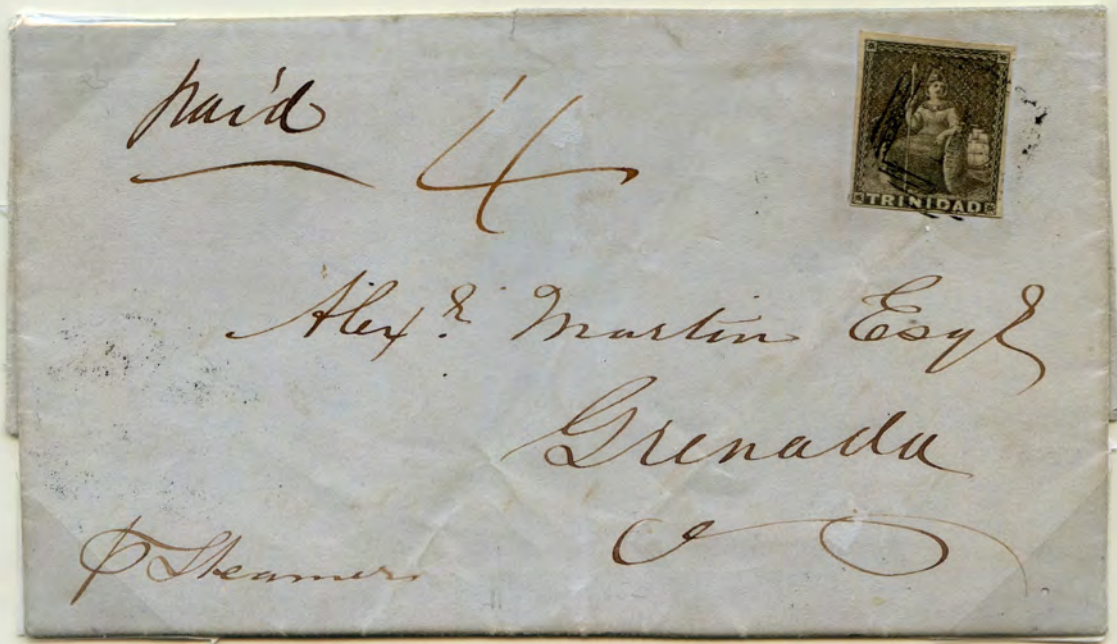 paid 4
TRINIDAD
Alexr. Martin Esqr
Grenada
p Steamer